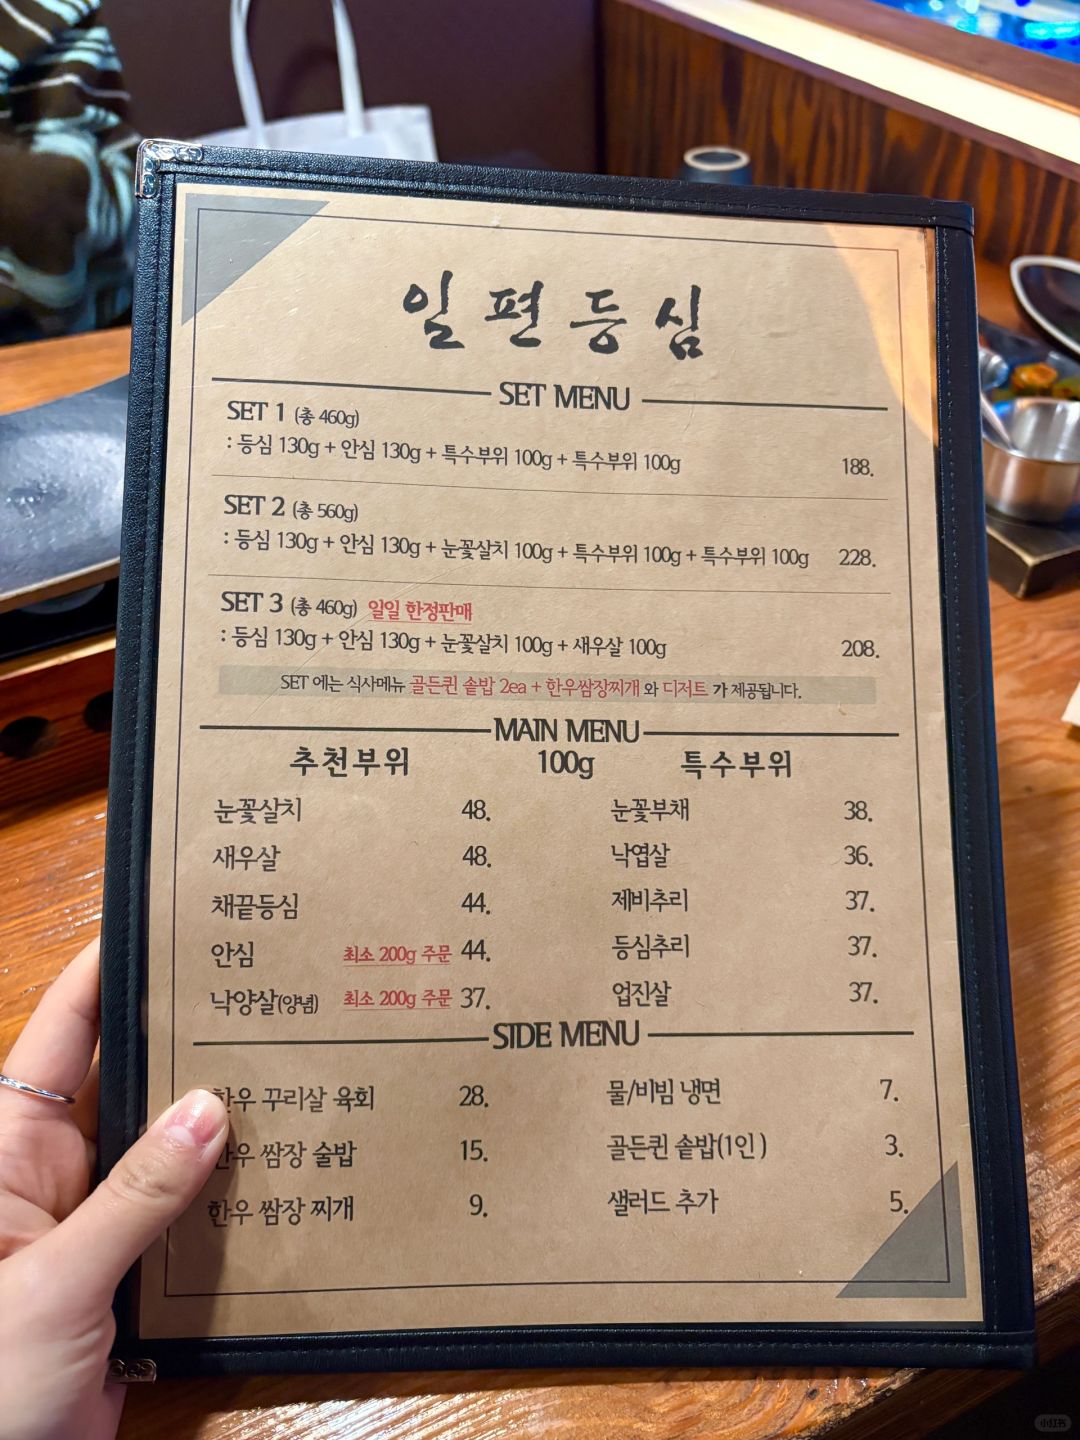 일편등심
SET MENU
SET 1 (총 460g)
: 등심 130g + 안심 130g + 특수부위 100g + 특수부위 100g 188.
SET 2 (총 560g)
: 등심 130g + 안심 130g + 눈꽃살치 100g + 특수부위 100g + 특수부위 100g 228.
SET 3 (총 460g) 일일 한정판매
: 등심 130g + 안심 130g + 눈꽃살치 100g + 새우살 100g 208.
SET 에는 식사메뉴 골든퀸 솥밥 2ea + 한우쌈장찌개 와 디저트 가 제공됩니다.
MAIN MENU
추천부위 100g 특수부위
눈꽃살치 48. 눈꽃부채 38.
새우살 48. 낙엽살 36.
채끝등심 44. 제비추리 37.
안심 최소 200g 주문 44. 등심추리 37.
낙양살(양념) 최소 200g 주문 37. 업진살 37.
SIDE MENU
한우 꾸리살 육회 28. 물/비빔 냉면 7.
한우 쌈장 술밥 15. 골든퀸 솥밥(1인) 3.
한우 쌈장 찌개 9. 샐러드 추가 5.
小红书